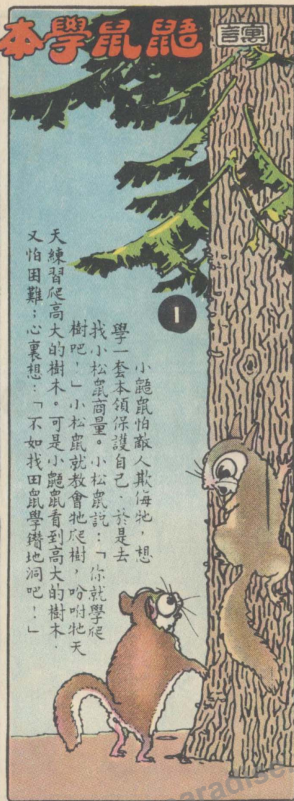 寓言
鼯鼠學本
小鼯鼠怕敵人欺侮牠，想
學一套本領保護自己．於是去
找小松鼠商量。小松鼠說：「你就學爬
樹吧！」小松鼠就教會牠爬樹，吩咐牠天
天練習爬高大的樹木。可是小鼯鼠看到高大的樹木．
又怕困難；心裏想：「不如找田鼠學鑽地洞吧！」
1